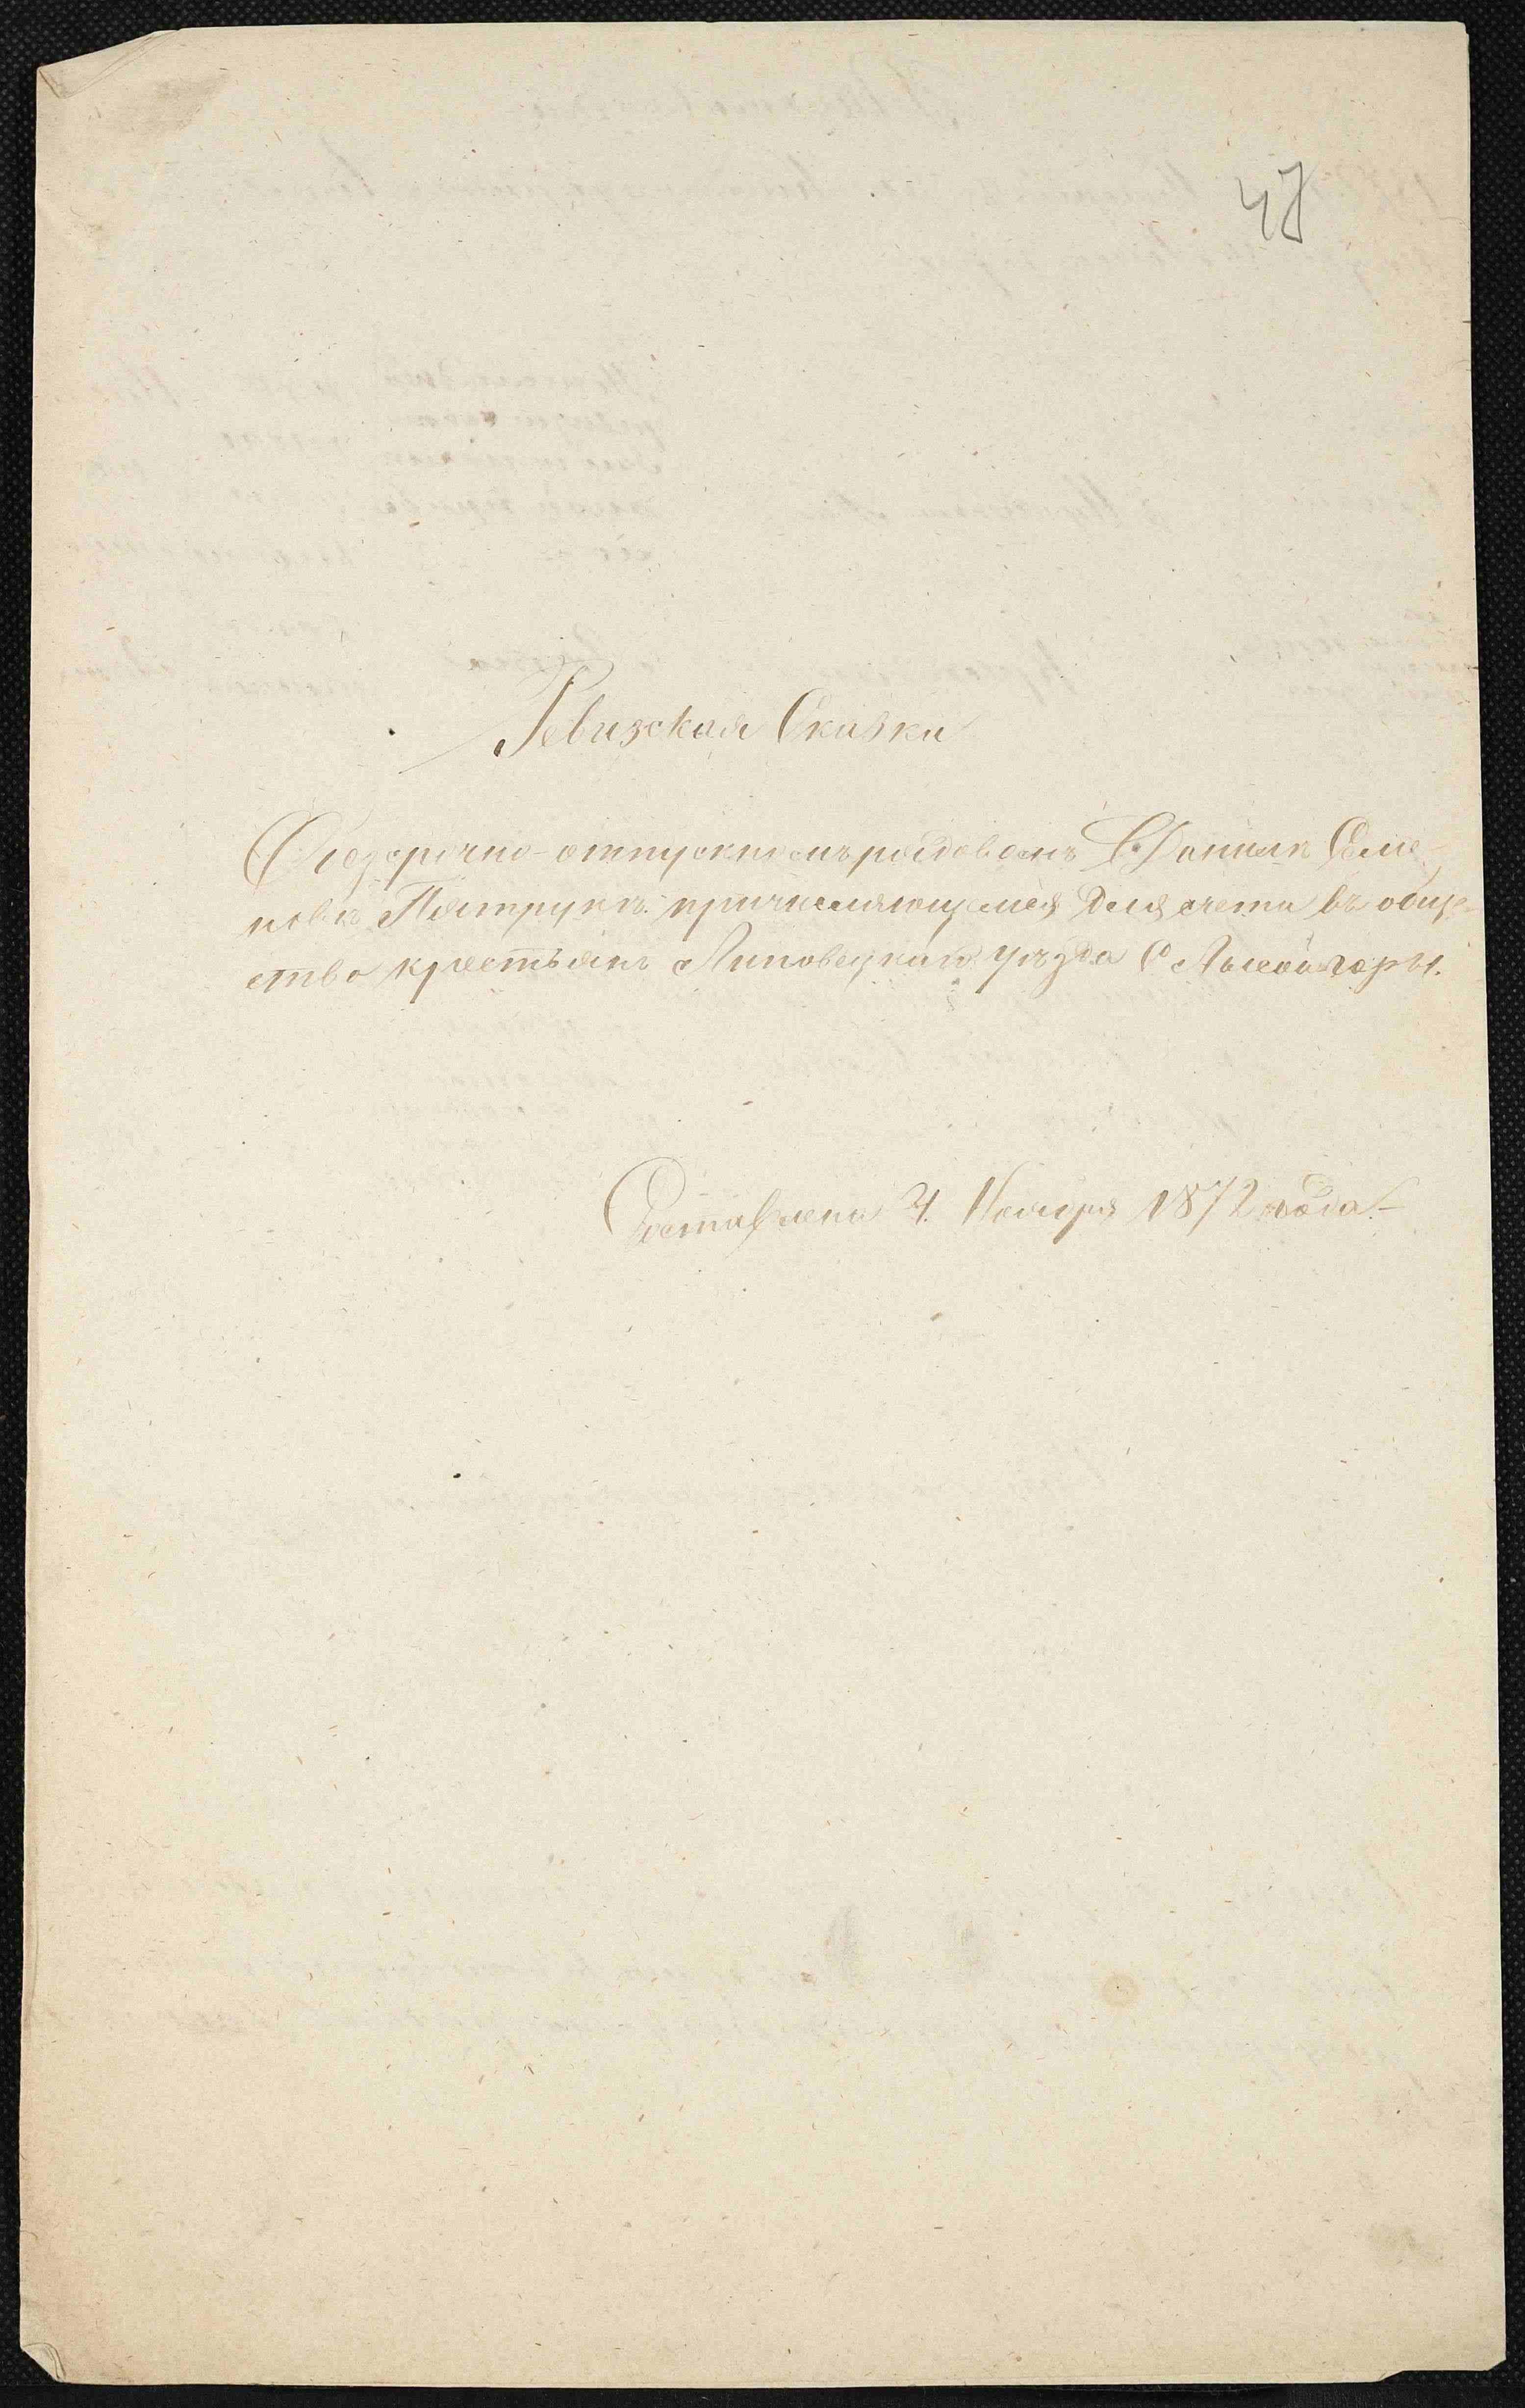 47
Ревизская Сказка
Безсрочно-отпускномъ рядовомъ Данилъ Семе-
новъ Пятрукъ причисляющемся для счета въ обще-
ство крестьянъ Липовецкаго уѣзда С Лысой горы.
Составлена 4. Ноября 1872 года